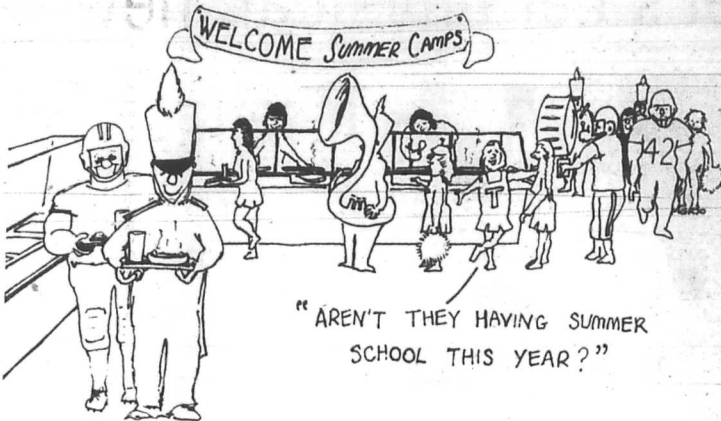 WELCOME SUMMER CAMPS
42
T
"AREN'T THEY HAVING SUMMER
SCHOOL THIS YEAR?"